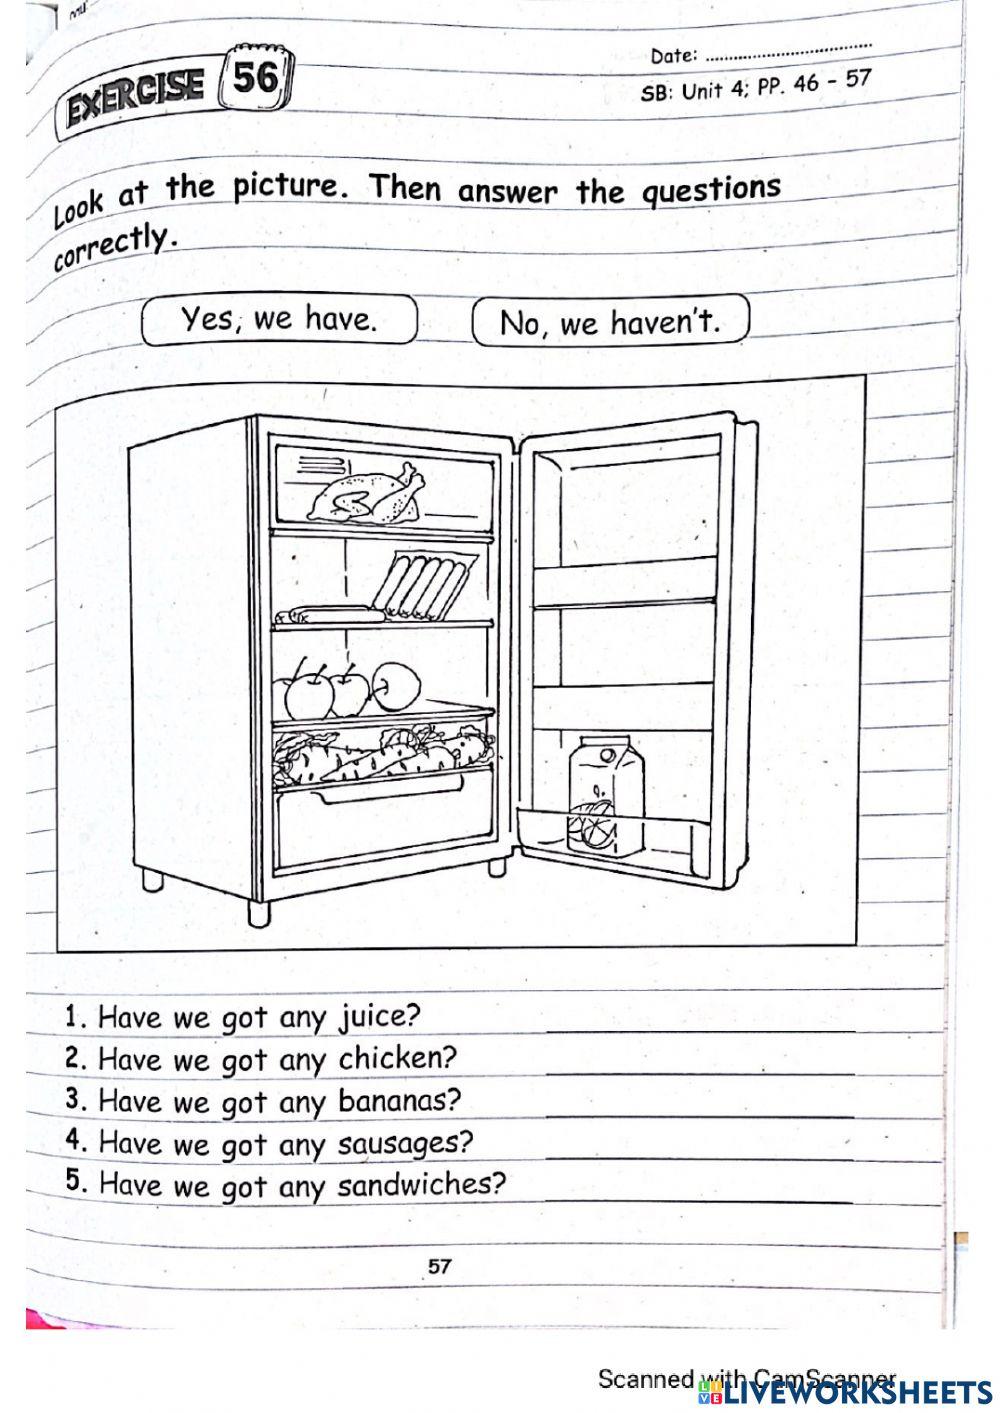 EXERCISE 56
Date: ....................................
SB: Unit 4; PP. 46 - 57
Look at the picture. Then answer the questions
correctly.
Yes, we have.
No, we haven't.
1. Have we got any juice?
2. Have we got any chicken?
3. Have we got any bananas?
4. Have we got any sausages?
5. Have we got any sandwiches?
57
Scanned with CamScanner
LIVEWORKSHEETS